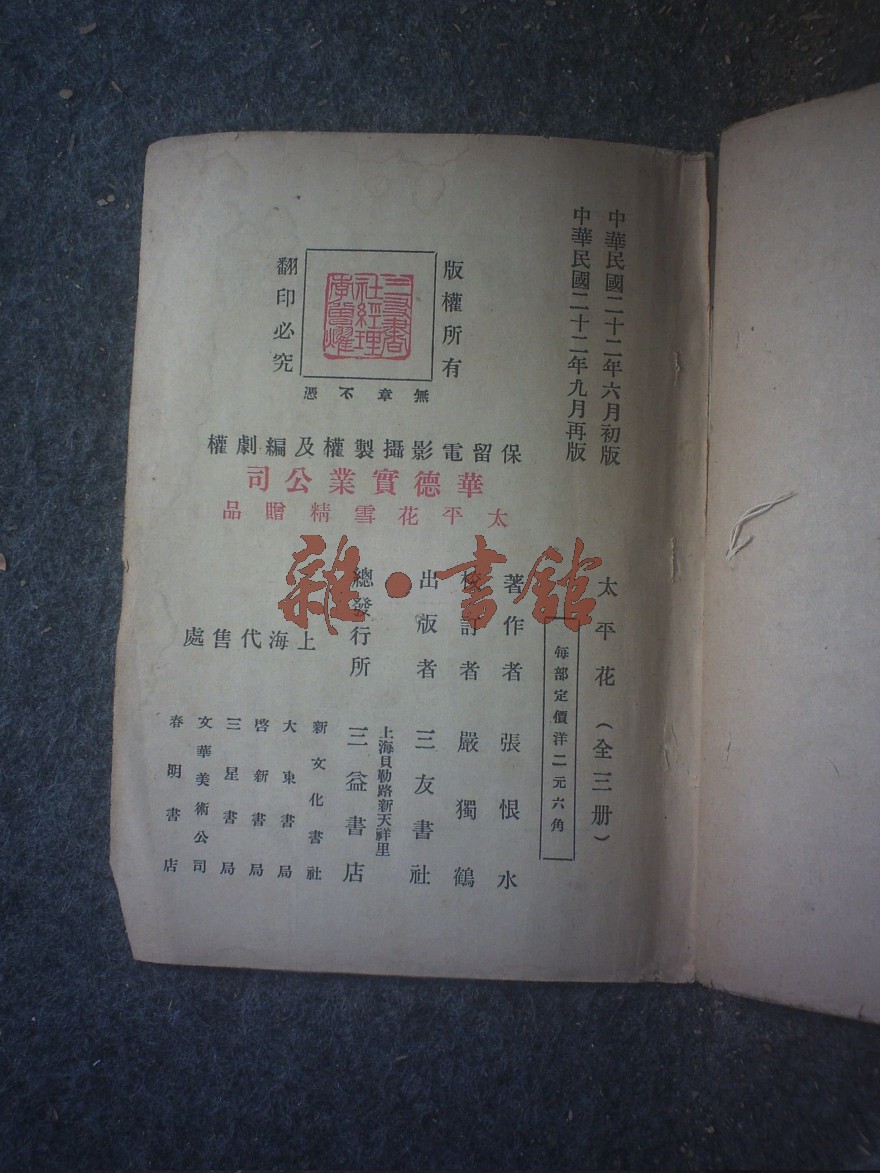 中華民國二十二年六月初版
中華民國二十二年九月再版
版權所有
三友書
社經理
翻印必究
無章不憑
保留電影攝製權及編劇權
華德實業公司
太平花雪精贈品
太平花（全三册）
每部定價洋二元六角
著作者 張恨水
校訂者 嚴獨鶴
出版者 三友書社
上海貝勒路新天祥里
總發行所 三益書店
上海代售處
新文化書社
大東書局
啓新書局
三星書局
文華美術公司
春明書店
雜·書館